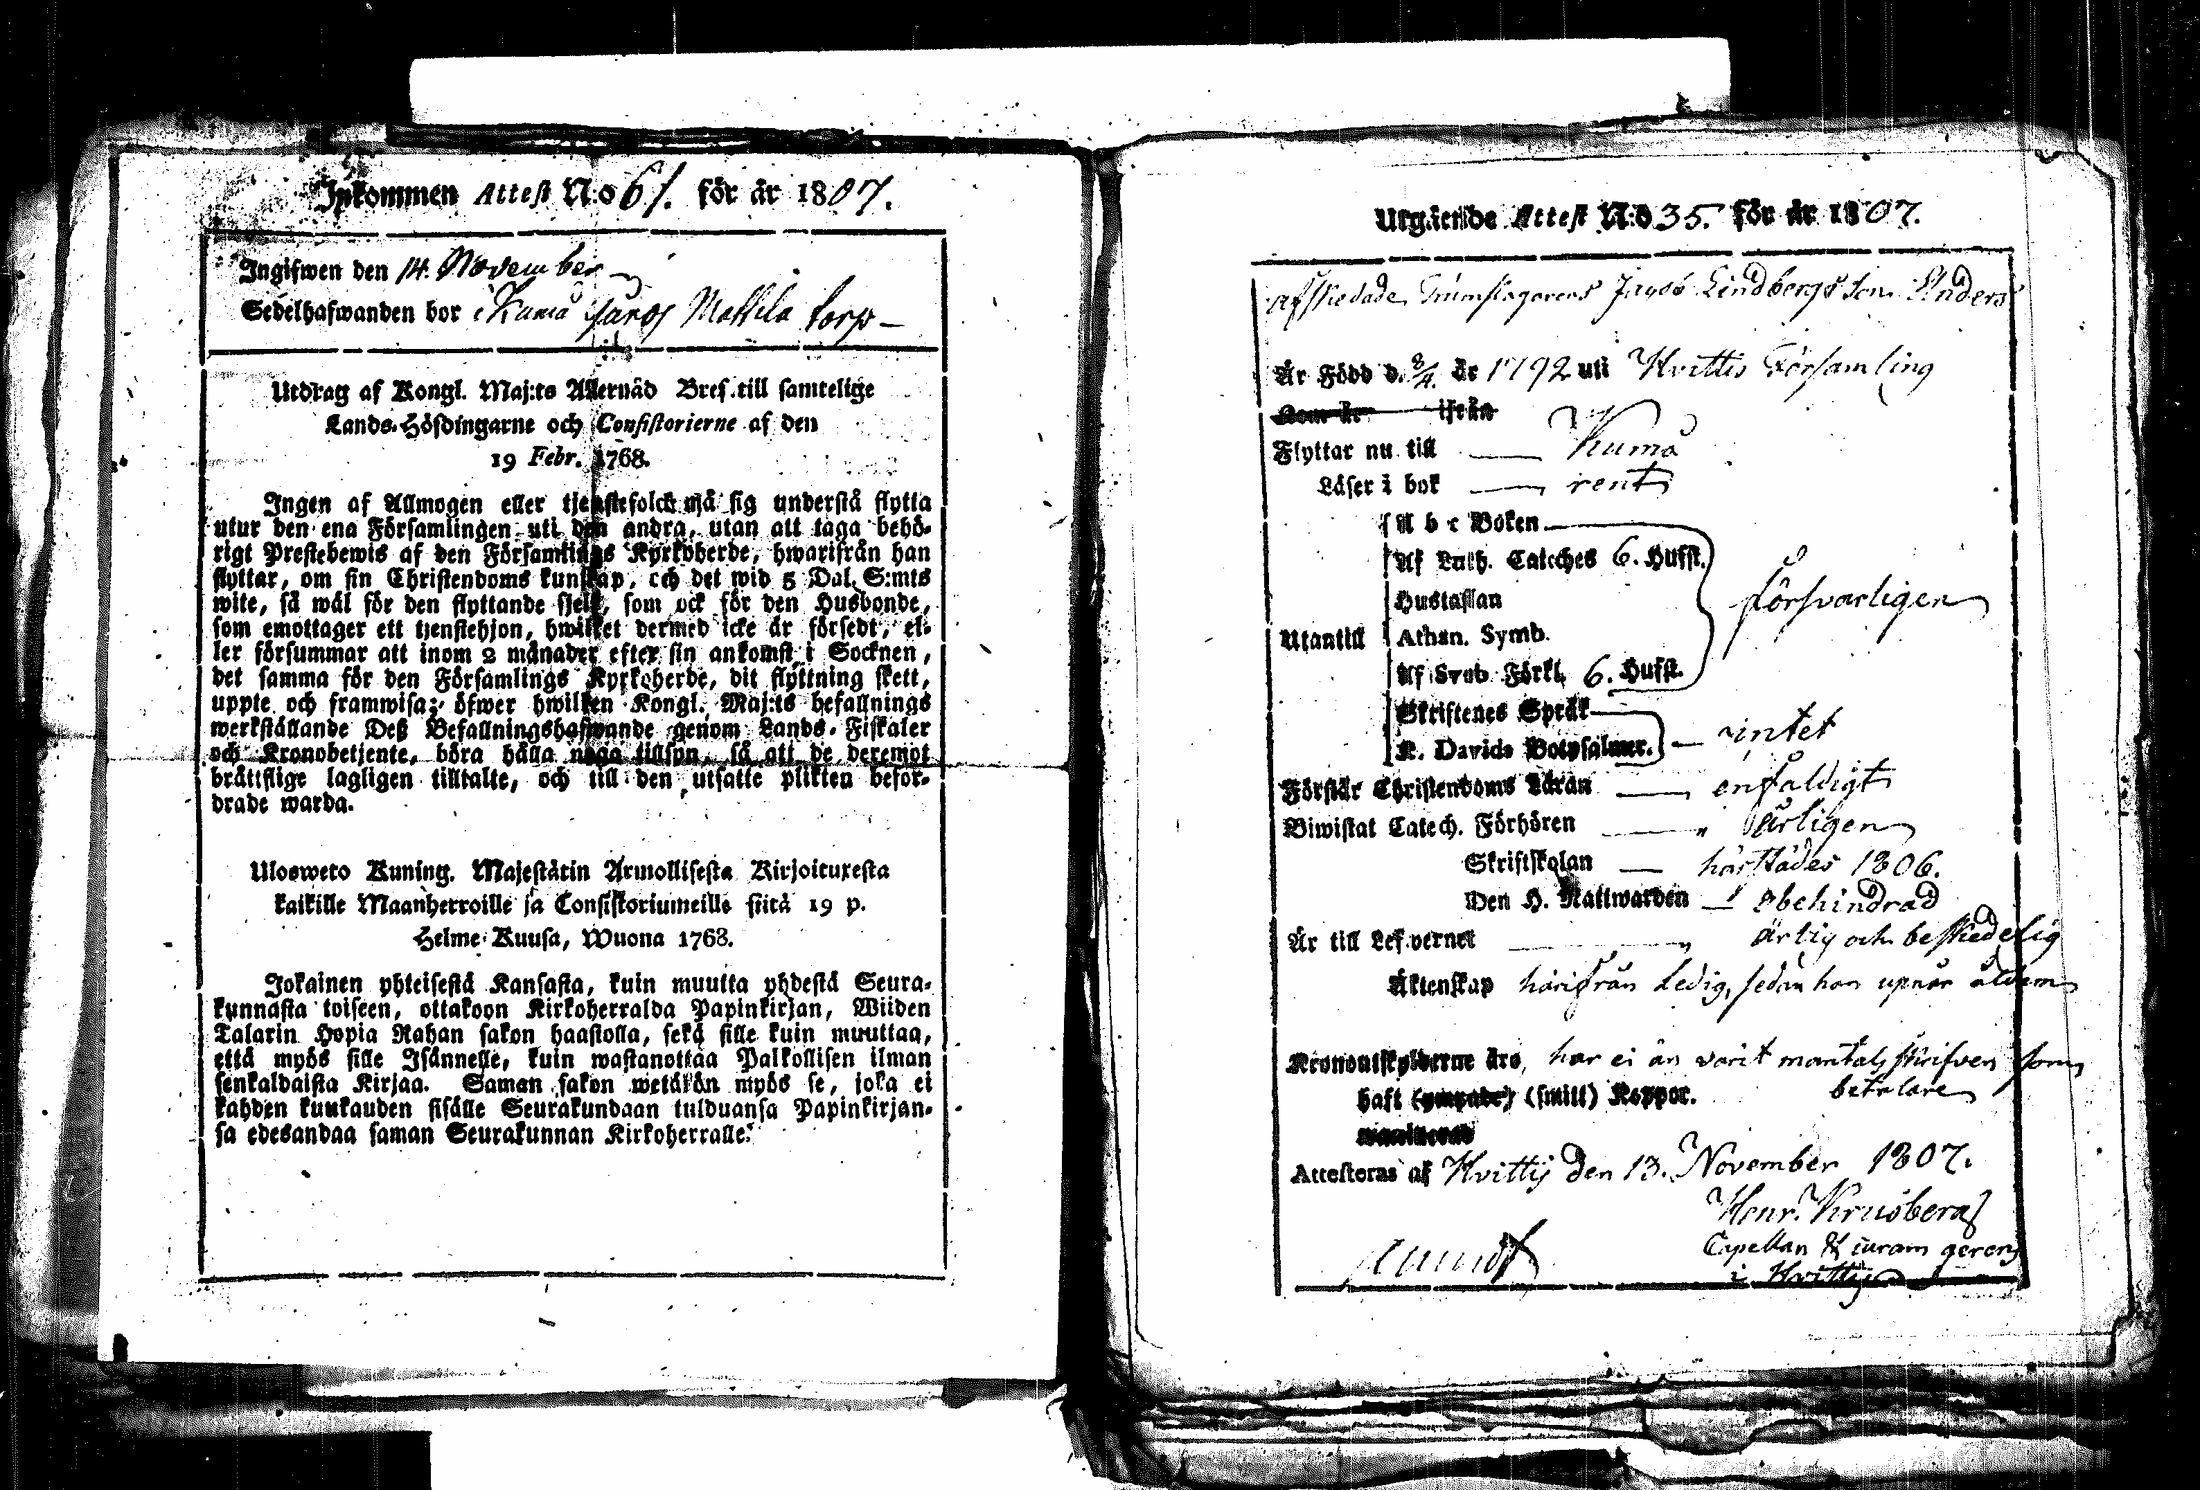 Inkommen Attest N:o 61. för år 1807.
Ingifwen den 14. November
Sedelhafwanden bor i Kumo Mattila torp –
Utdrag af Kongl. Maj:ts Allernåd Bref till samtelige
Lands-Höfdingarne och Consistorierne af den
19 Febr. 1768.
Ingen af Allmogen eller tjenstefolck må sig understå flytta
utur den ena Församlingen uti den andra, utan att taga behö-
rigt Prestebewis af den Församlings Kyrkoherde, hwarifrån han
flyttar, om sin Christendoms kunskap, och det wid 5 Dal. S:mts
wite, så wäl för den flyttande sjelf, som ock för den Husbonde,
som emottager ett tjenstehjon, hwilket dermed icke är försedt, el-
ler försummar att inom 2 månader efter sin ankomst i Socknen,
det samma för den Församlings Kyrkoherde, dit flyttning skett,
uppte och framwisa; öfwer hwilken Kongl. Maj:ts befallnings
werkställande Deß Befallningshafwande genom Lands-Fiskaler
och Kronobetjente, böra hålla noga tillsyn, så att de deremot
bråttslige lagligen tilltalte, och till den utsatte plikten befor-
drade warda.
Ulosweto Kuning. Majestätin Armollisesta Kirjoituxesta
kaikille Maanherroille ja Consistoriumeille siitä 19 p.
Helme-Kuusa, Wuona 1768.
Jokainen yhteisestä Kansasta, kuin muutta yhdestä Seura-
kunnasta toiseen, ottakoon Kirkoherralda Papinkirjan, Wiiden
Talarin Hopia Rahan sakon haastolla, sekä sille kuin muuttaa,
että myös sille Isännelle, kuin wastanottaa Palkollisen ilman
senkaldaista Kirjaa. Saman sakon wetäkön myös se, joka ei
kahden kuukauden sisälle Seurakundaan tulduansa Papinkirjan-
sa edesandaa saman Seurakunnan Kirkoherralle.
Utgående Attest N:o 35. för år 1807.
afskedade Trumslagarens Jacob Lindbergs Son Anders
Är Född d. 3/4. år 1792 uti Hvittis Församling
Kom år ifrån
Flyttar nu till — Kumo
Läser i bok — rent
A b c Boken
Af Luth. Cateches 6. Hufst.
Hustaflan
försvarligen
Utantill Athan. Symb.
Af Sveb. Förkl. 6. Hufst.
Skriftenes Språk
K. Davids Botpsalmer. — intet
Förstår Christendoms Läran — enfaldigt
Biwistat Catech. Förhören — „ årligen
Skriftskolan — härstädes 1806.
Den H. Nattwarden — obehindrad
Är till Lefvernet — „ ärlig och beskedelig
Äktenskap härifrån Ledig, sedan han upnår åldern
Kronoutskylderne äro, har ei än varit mantals skrifven som
betalare
haft (smitt) Koppor.
Attesteras af Hvittis den 13. November 1807.
Henr. Krusberg
Capellan & curam gerens
i Hvittis